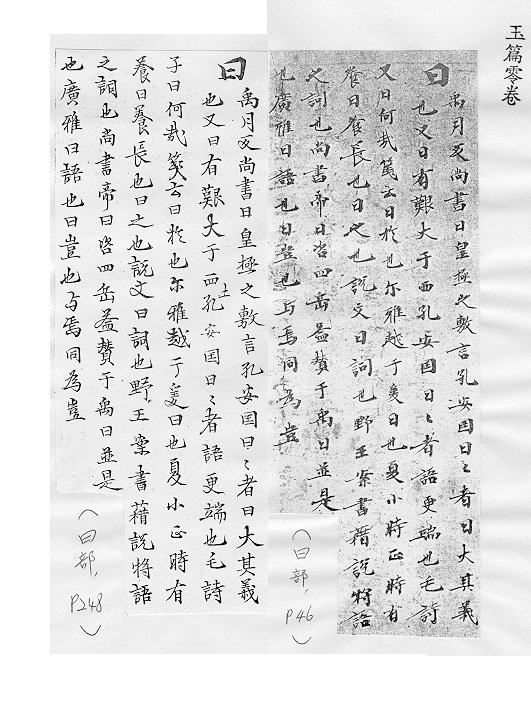 玉篇零卷
曰
禹月反尚書曰皇極之敷言孔安国曰〻者曰大其義
也又曰有艱大于西孔安国曰〻者語更端也毛詩
又曰何㢤箋云曰於也尒雅越于爰曰也夏小時正時有
養曰養長也曰之也説文曰詞也野王案書藉説將語
之詞也尚書帝曰咨四岳益賛于禹曰並是
也廣雅曰語也曰豈也与焉同為豈
(曰部,
P46
)
曰
禹月反尚書曰皇極之敷言孔安国曰〻者曰大其義
也又曰有艱大于西土孔安国曰〻者語更端也毛詩
子曰何㢤箋云曰於也尒雅越亍爰曰也夏小正時有
養曰養長也曰之也説文曰詞也野王案書藉説將語
之詞也尚書帝曰咨四岳益賛于禹曰並是
也廣雅曰語也曰豈也与焉同為豈
(曰部,
P248
)